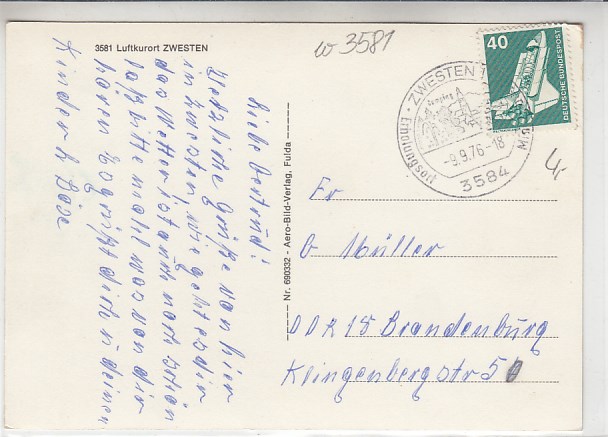 3581 Luftkurort ZWESTEN
w 3581
Liebe Gertrud!
Herzliche Grüße von hier
in Zwesten, wie geht es dir
das Wetter ist auch noch schön
laß bitte mal was von dir
hören Es grüßt dich u deinen
Kinder
Nr. 690332 - Aero-Bild-Verlag, Fulda
40
DEUTSCHE BUNDESPOST
ZWESTEN 1
Erholung
-9.9.76-18
3584
4,-
Fr
G Müller
DDR 18 Brandenburg
Klingenbergstr 5